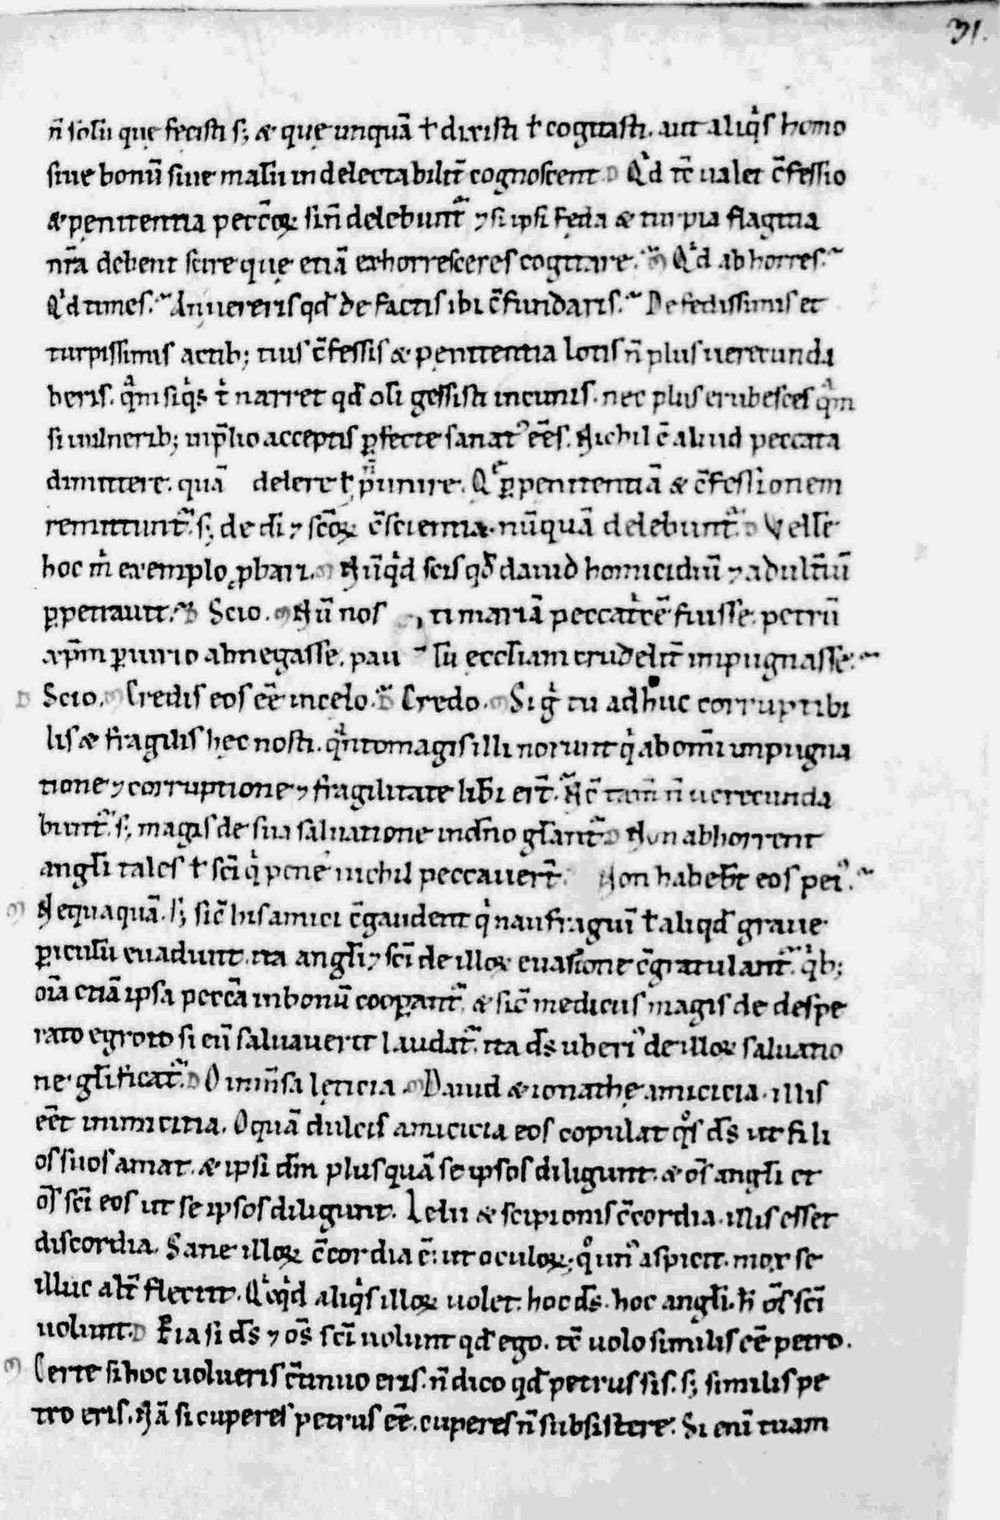 31.
n̄ solū que fecisti s; & que unquā ł dixisti ł cogitasti. aut aliq̇s homo
siue bonū siue malū indelectabilit̄ cognoscent D Qͥd tc̄ ualet c̄fessio
& penitentia pecc̄oꝝ sin̄ delebunt᷑ ⁊ si ipsi feda & turpia flagitia
nr̄a debent scire que etiā exhorresceres cogitare. ᷑ M Qͥd abhorres. ᷑
Qͥd times. ᷑ An uereris qd̄ de factis ibi c̄fundaris. ᷑ De fedissimis et
turpissimis actib; tuis c̄fessis & penitentia lotis n̄ plus uerecunda
beris. qͣm siqͥs tͥ narret qd̄ oli gessisti incunis. nec plus erubesces qͣm
si uulnerib; inp̄lio acceptis ꝑfecte sanat᷒ ēēs. Nichil ē aliud peccata
dimittere. quā delere ł punire. Q ꝑ penitentiā & c̄fessionem
remittunt᷑. s; de dī ⁊ sc̄oꝝ c̄scientia. nūquā delebunt᷑. D Velle
hoc mͥ exemplo ꝓbari. M Nūqͥd scis qd̄ dauid homicidiū ⁊ adult̄iū
ꝑpetrauit. ᷑ D Scio. M Nū nos ti mariā peccatͥcē fuisse. petrū
ap̄m ꝑiurio abnegasse. pau lū eccłiam crudelit̄ inpugnasse. ᷑
D Scio. M Credis eos ēē incelo. ᷑ D Credo. M Si g̊ tu adhuc corruptibi
lis & fragilis hec nosti. qͣnto magis illi norunt qͥ abomī inpugna
tione ⁊ corruptione ⁊ fragilitate lib̄i er̄t. Nc̄ tam̄ n̄ uerecunda
bunt᷑. s; magis de sua saluatione indn̄o głant᷑ D Non abhorrent
angłi tales ł sc̄i qͥ pene nichil peccauer̄t. Non habeb̄t eos pei᷒. ᷑
M Nequaquā. S; sic̄ his amici c̄gaudent qͥ naufragiū ł aliqd̄ graue
ꝑiculū euadunt. ita angłi ⁊ sc̄i de illoꝝ euasione c̄gratulant᷑. qͥb;
oīa etiā ipsa pecc̄a inbonū cooꝑant᷑. & sic̄ medicus magis de despe
rato egroto si eū saluauerit laudat᷑. ita ds̄ uberi᷒ de illoꝝ saluatio
ne głificat᷑. D O imm̄sa leticia. M Dauid & ionathe amicicia. illis
eēt inimicitia. O quā dulcis amicicia eos copulat qͦs ds̄ ut fili
os suos amat. & ipsi dm̄ plus quā se ipsos diligunt. & os̄ angłi et
os̄ sc̄i eos ut se ipsos diligunt. Lelii & scipionis c̄cordia. illis esset
discordia. Sane illoꝝ c̄cordia ē. ut oculoꝝ; qͦ un᷒ aspicit. mox se
illuc alt̄ flectit. Qͥcqͥd aliqͥs illoꝝ uolet. hoc ds̄. hoc angłi. h̄ os̄ sc̄i
uolunt. D Eia si ds̄ ⁊ os̄ sc̄i uolunt qd̄ ego. tc̄ uolo similis ēē petro.
M Certe si hoc uolueris c̄tinuo eris. n̄ dico qd̄ petrus sis. s; similis pe
tro eris. Nā si cuperes petrus ēē. cuperes n̄ subsistere. Si enī tuam